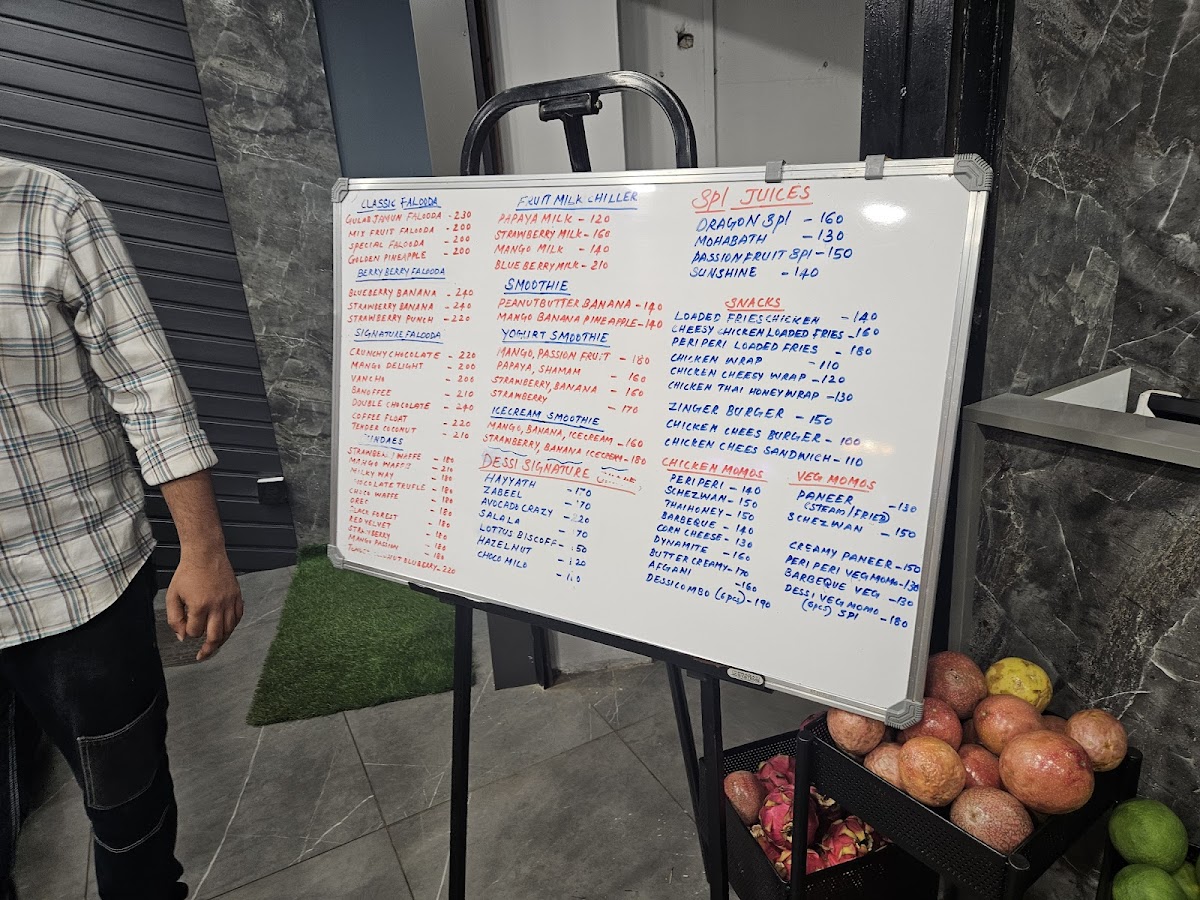 CLASSIC FALOODA
GULAB JAMUN FALOODA - 230
MIX FRUIT FALOODA - 200
SPECIAL FALOODA - 200
GOLDEN PINEAPPLE - 200
BERRY BERRY FALOODA
BLUEBERRY BANANA - 240
STRAWBERRY BANANA - 240
STRAWBERRY PUNCH - 220
SIGNATURE FALOODA
CRUNCHY CHOCOLATE - 220
MANGO DELIGHT - 200
VANCHO - 200
BANOFFEE - 210
DOUBLE CHOCOLATE - 240
COFFEE FLOAT - 220
TENDER COCONUT - 210
STRAWBERRY WAFFE - 180
MANGO WAFFE - 210
MILKY WAY - 180
CHOCOLATE TRUFLE - 180
CHOCO WAFFE - 180
OREO - 180
BLACK FOREST - 180
RED VELVET - 180
STRAWBERRY - 180
MANGO PASSION - 180
BLUBERRY - 220
FRUIT MILK CHILLER
PAPAYA MILK - 120
STRAWBERRY MILK - 160
MANGO MILK - 140
BLUE BERRY MILK - 210
SMOOTHIE
PEANUTBUTTER BANANA - 140
MANGO BANANA PINEAPPLE - 140
YOGIIRT SMOOTHIE
MANGO, PASSION FRUIT - 180
PAPAYA, SHAMAM - 160
STRAWBERRY, BANANA - 160
STRAWBERRY - 170
ICECREAM SMOOTHIE
MANGO, BANANA, ICECREAM - 160
STRAWBERRY, BANANA ICECREAM - 180
DESSI SIGNATURE
HAYYATH - 170
ZABEEL
AVOCADO CRAZY
SALALA
LOTTUS BISCOFF
HAZELNUT
CHOCO MILO
Spl JUICES
DRAGON Spl - 160
MOHABATH - 130
PASSION FRUIT Spl - 150
SUNSHINE - 140
SNACKS
LOADED FRIES CHICKEN - 140
CHEESY CHICKEN LOADED FRIES - 160
PERI PERI LOADED FRIES - 180
CHICKEN WRAP - 110
CHICKEN CHEESY WRAP - 120
CHICKEN THAI HONEY WRAP - 130
ZINGER BURGER - 150
CHICKEN CHEES BURGER - 100
CHICKEN CHEES SANDWICH - 110
CHICKEN MOMOS
PERI PERI - 140
SCHEZWAN - 150
THAI HONEY - 150
BARBEQUE - 140
CORN CHEESE - 130
DYNAMITE - 160
BUTTER CREAMY - 170
AFGANI - 160
DESSI COMBO (6pcs) - 190
VEG MOMOS
PANEER - 130
(STEAM/FRIED)
SCHEZWAN - 150
CREAMY PANEER - 150
PERI PERI VEG MOMO - 130
BARBEQUE VEG - 130
DESSI VEG MOMO - 180
(6pcs) SPl